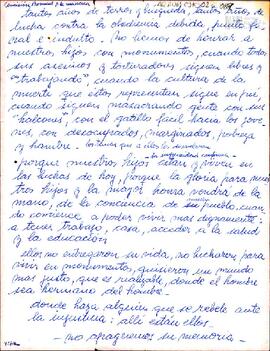 tantos años de terror y búsqueda, tantos años de
lucha contra la obediencia debida, punto fi-
nal e indulto. No hemos de honrar a
nuestros hijos con monumentos, cuando todos
sus asesinos y torturadores siguen libres y
"trabajando", cuando la cultura de la
muerte que éstos representan sigue en pie,
cuando siguen masacrando gente con sus
"halcones", con el gatillo fácil hacia los jóve-
nes, con desocupados, marginados, pobreza
y hambre.
porque nuestros hijos están y viven en
las luchas de hoy, porque la gloria para nues-
tros hijos y la mayor honra vendrá de la
mano, de la conciencia de nuestro pueblo, cuan-
do comience a poder vivir más dignamente:
a tener trabajo, casa, acceder a la salud
y la educación
ellos no entregaron su vida, no lucharon para
vivir en monumentos, quisieron un mundo
más justo, que es realizable, donde el hombre
sea hermano del hombre.
donde haya alguien que se rebele ante
la injusticia: allí están ellos.
no apaguemos su memoria